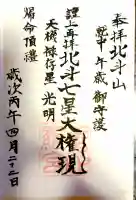 奉拝北斗山
歳中午歳御守護
謹上再拝北斗七星大権現
天機禄存星光明
帰命頂禮
歳次丙午四月二十二日